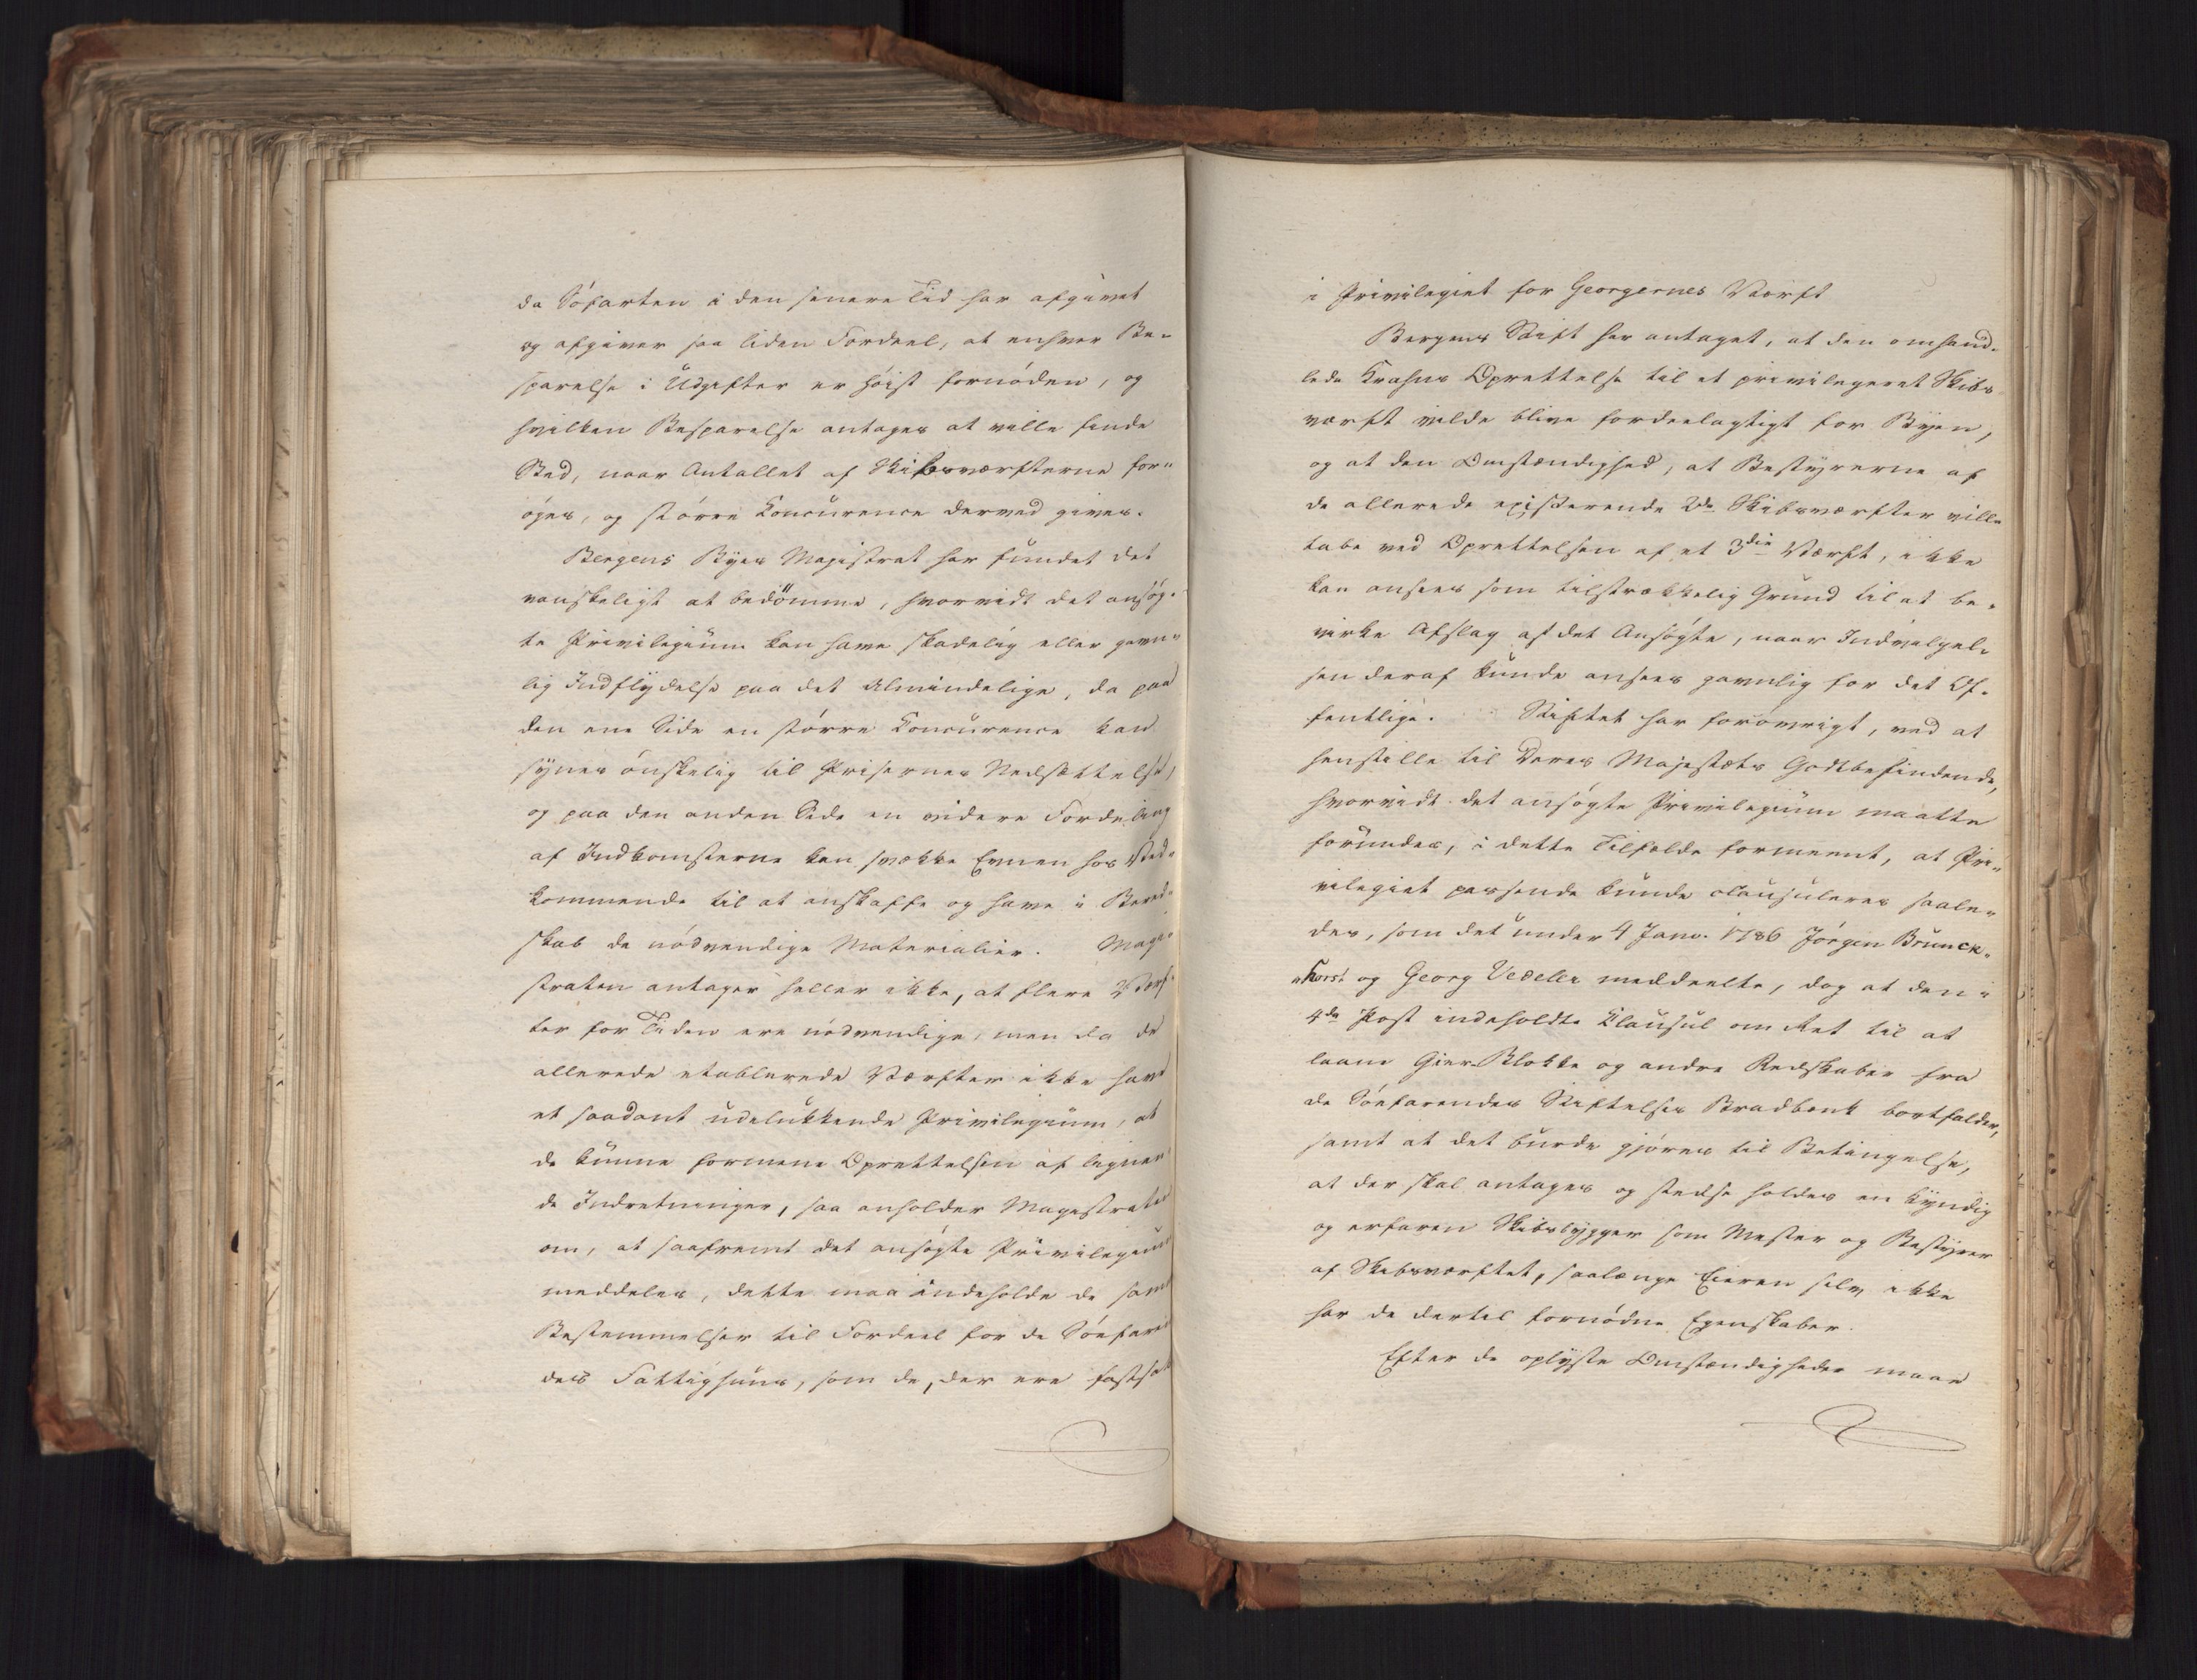 da Söfarten i den senere Tid har afgivet
og afgiver saa liden Fordeel, at enhver Be-
sparelse i Udgifter er höist fornöden, og
hvilken Besparelse antages at ville finde
Sted, naar Antallet af Skibsværfterne for-
öges, og större Concurence derved gives.
Bergens Byes Magistrat har fundet det
vanskeligt at bedömme, hvorvidt det ansög-
te Privilegium kan have skadelig eller gavn-
lig Indflydelse paa det Almindelige, da paa
den ene Side en större Concurence kan
synes önskelig til Prisernes Nedsættelse,
og paa den anden Side en videre Fordeling
af Indkomsterne kan svække Evnen hos Ved-
kommende til at anskaffe og have i Bered-
skab de nödvendige Materialier. Magi-
straten antager heller ikke, at flere Værf-
ter for Tiden ere nödvendige, men da de
allerede etablerede Værfter ikke have
et saadant udelukkende Privilegium, at
de kunne formene Oprettelsen af lignen
de Indretninger, saa anholder Magistraten
om, at saafremt det ansögte Privilegium
meddeles, dette maa indeholde de samme
Bestemmelser til Fordeel for de Söefaren
des Fattighuus, som de, der ere fastsat
i Privilegiet for Georgernes Værft
Bergens Stift har antaget, at den omhand-
lede Krahns Oprettelse til et privilegeret Skibs
værft vilde blive fordeelagtigt for Byen,
og at den Omstændighed, at Bestyrerne af
de allerede existerende 2de Skibsværfter ville
tabe ved Oprettelsen af et 3die Værft, ikke
kan ansees som tilstrækkelig Grund til at be-
virke Afslag af det Ansögte, naar Indvilgel-
sen deraf kunde ansees gavnlig for det Of-
fentlige. Stiftet har foróvrigt, ved at
henstille til Deres Majestæts Godtbefindende,
hvorvidt det ansögte Privilegium maatte
forundes, i dette Tilfælde formeent, at Pri-
vilegiet passende kunde clausuleres saale-
des, som det under 4 Janv. 1786 Jörgen Brunck-
horst og Georg Vedeler meddeelte, dog at den i
4de Post indeholdte Clausul om Ret til at
laane Gier-Blokke og andre Redskaber fra
de Söefarendes Stiftelses Bradbænk bortfalder,
samt at det burde gjöres til Betingelse,
at der skal antages og stedse holdes en kyndig
og erfaren Skibsbygger som Mester og Bestyrer
af Skibsværftet, saalænge Eieren selv ikke
har de dertil fornödne Egenskaber.
Efter de oplyste Omstændigheder maae